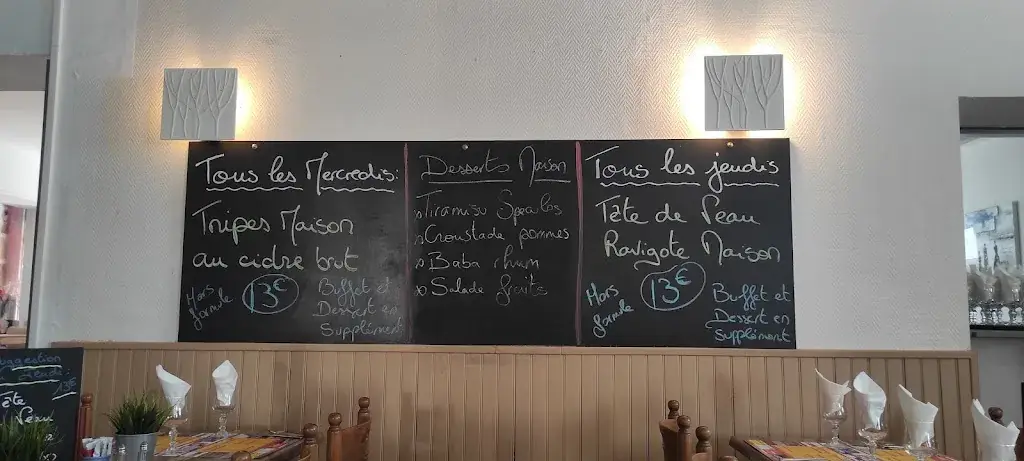 Tous les Mercredis:
Tripes Maison
au cidre brut
Hors
formule
13€
Buffet et
Dessert en
Supplément
Desserts Maison
Tiramisu Speculos
Croustade pommes
Baba rhum
Salade fruits
Tous les jeudis
Tête de Veau
Ravigote Maison
Hors
formule
13€
Buffet et
Dessert en
supplément
13€
Tête
Veau